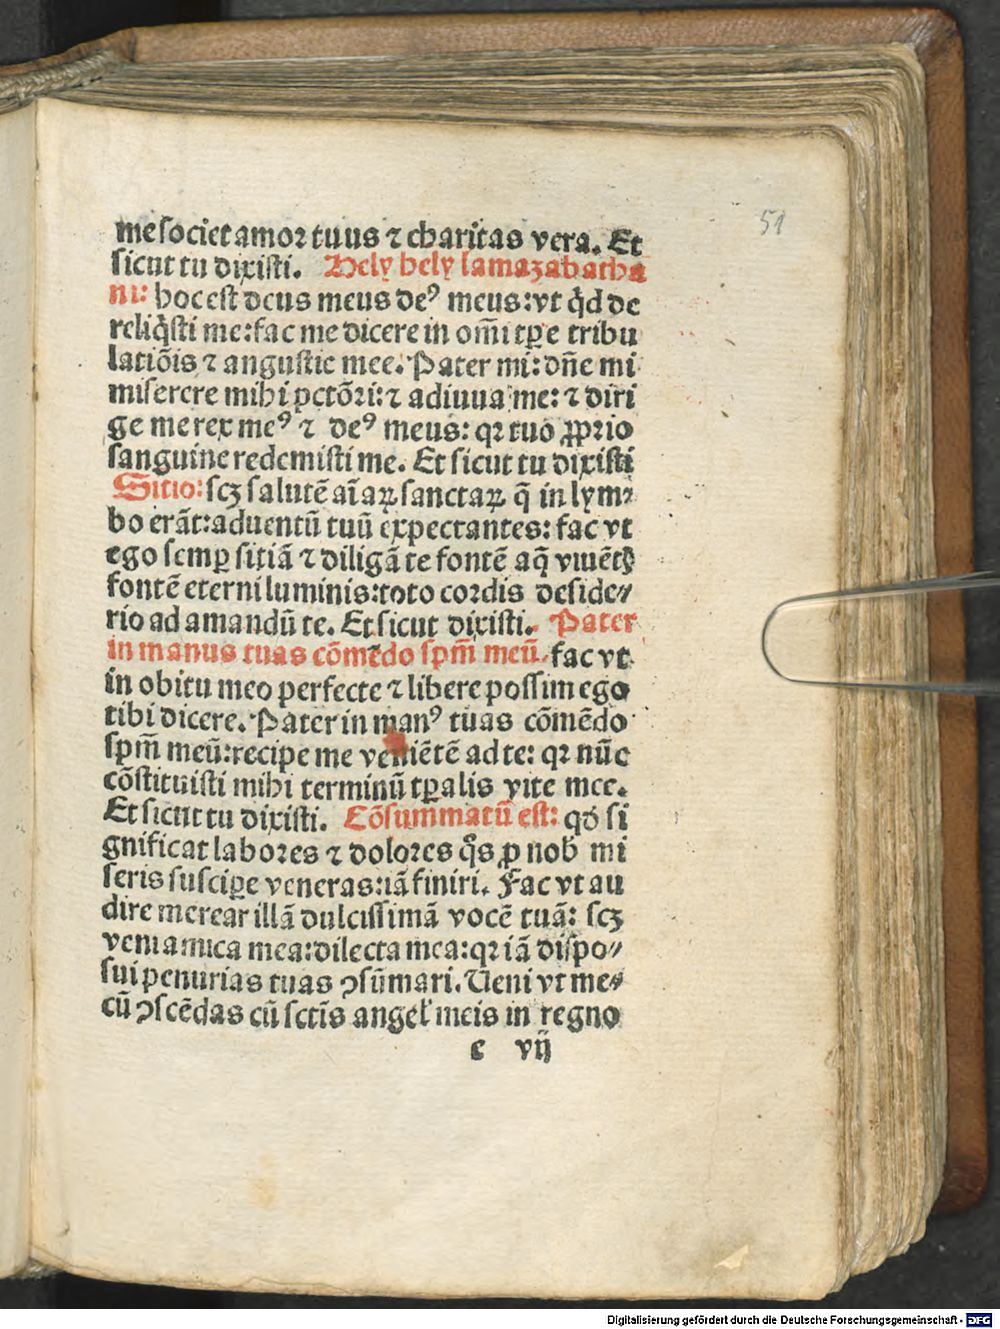 51
me societ amoꝛ tuus ⁊ charitas vera. Et
sicut tu dixisti. Hely hely lamazabatha
ni: hoc est deus meus deꝰ meus: vt qͥd de
reliqͥsti me: fac me dicere in om̄i tꝑe tribu
latiōis ⁊ angustie mee. Pater mi: dn̄e mi
miserere mihi pctōꝛi: ⁊ adiuua me: ⁊ diri
ge me rex meꝰ ⁊ deꝰ meus: qꝛ tuo ꝓpꝛio
sanguine redemisti me. Et sicut tu dixisti
Sitio: scꝫ salutē aīaꝝ sanctaꝝ q̄ in lym⸗
bo erāt: aduentū tuū expectantes: fac vt
ego semꝑ sitiā ⁊ diligā te fontē aq̄ viuētꝭ
fontē eterni luminis: toto coꝛdis deside⸗
rio ad amandū te. Et sicut dixisti. Pater
in manus tuas cōmēdo sp̄m meū. fac vt
in obitu meo perfecte ⁊ libere possim ego
tibi dicere. Pater in manꝰ tuas cōmēdo
sp̄m meū: recipe me veniētē ad te: qꝛ nūc
cōstituisti mihi terminū tꝑalis vite mee.
Et sicut tu dixisti. Cōsummatū est: qď si
gnificat laboꝛes ⁊ doloꝛes qͦs ꝓ nob̄ mi
seris suscipe veneras: iā finiri. Fac vt au
dire merear illā dulcissimā vocē tuā: scꝫ
veni amica mea: dilecta mea: qꝛ iā dispo⸗
sui penurias tuas ꝯsūmari. Veni vt me⸗
cū ꝯscēdas cū sctīs angeł meis in regno
e vij
Digitalisierung gefördert durch die Deutsche Forschungsgemeinschaft - DFG